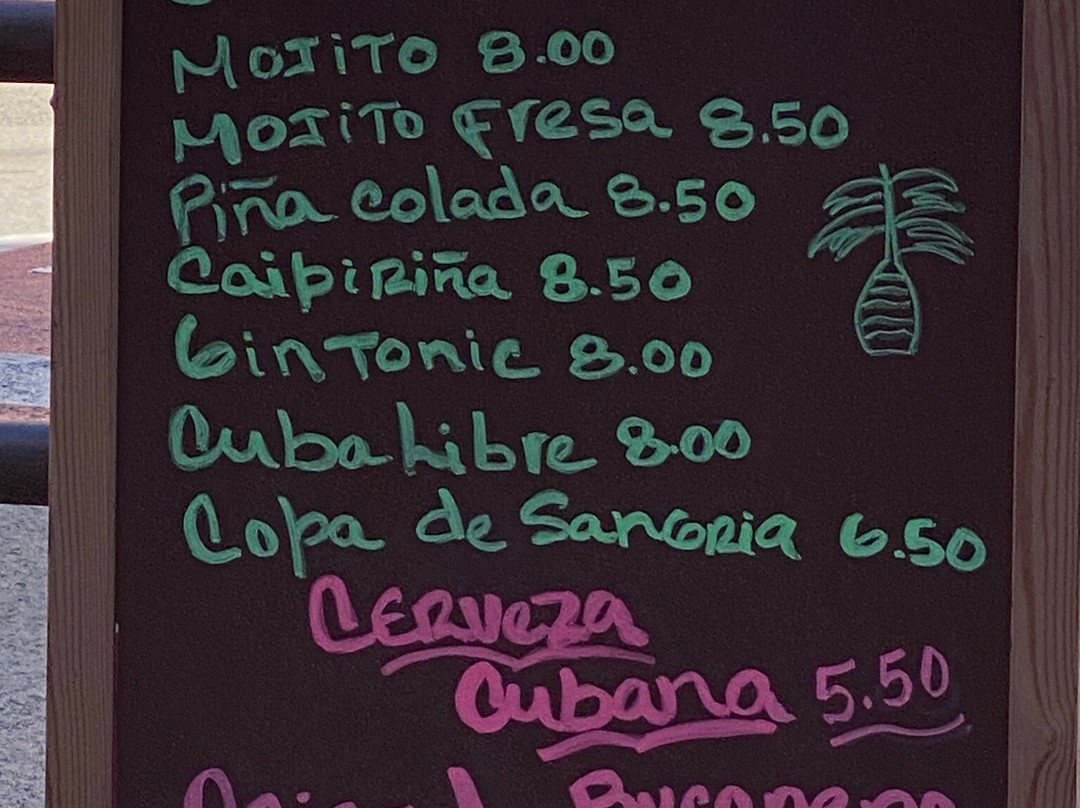 Mojito 8.00
Mojito Fresa 8.50
Piña Colada 8.50
Caipiriña 8.50
Gin Tonic 8.00
Cuba Libre 8.00
Copa de Sangria 6.50
Cerveza
Cubana 5.50